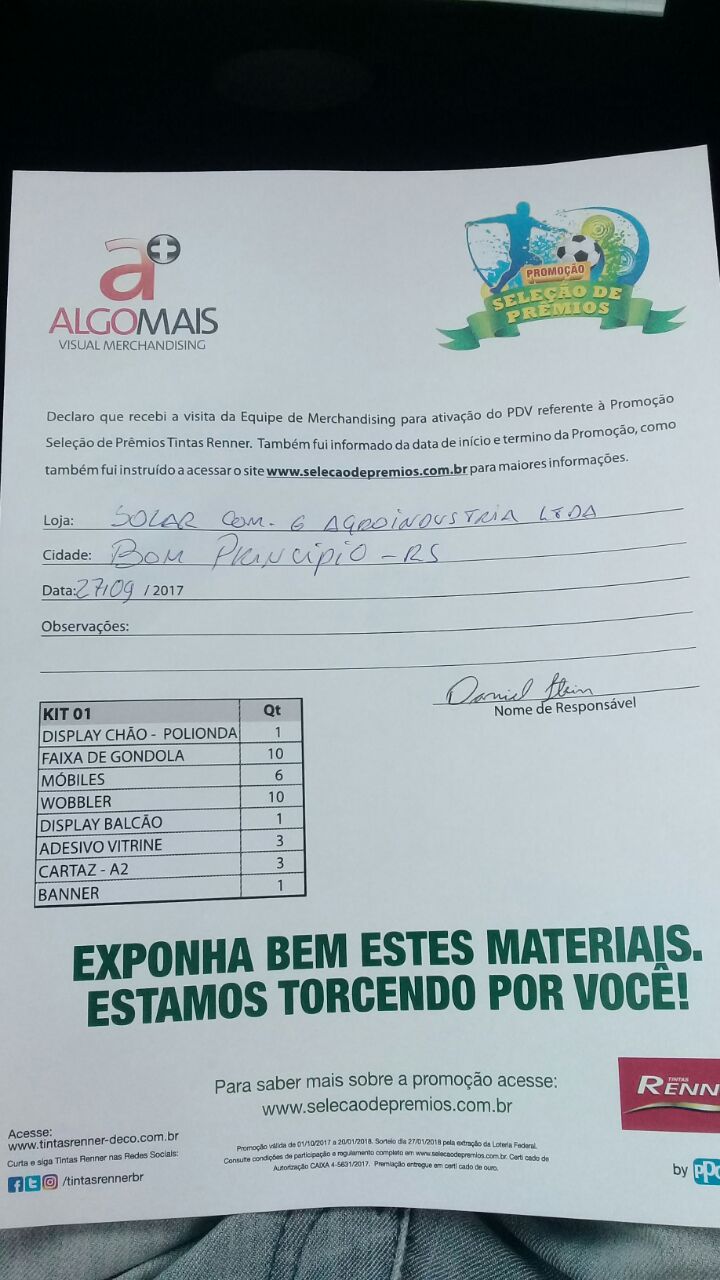 a+
ALGOMAIS
VISUAL MERCHANDISING
PROMOÇÃO
SELEÇÃO DE
PRÊMIOS
Declaro que recebi a visita da Equipe de Merchandising para ativação do PDV referente à Promoção
Seleção de Prêmios Tintas Renner. Também fui informado da data de início e termino da Promoção, como
também fui instruído a acessar o site www.selecaodepremios.com.br para maiores informações.
Loja: SOLAR COM. E AGROINDUSTRIA LTDA
Cidade: BOM PRINCÍPIO - RS
Data: 27/09 / 2017
Observações:
Daniel Stein
Nome de Responsável
KIT 01 Qt
DISPLAY CHÃO - POLIONDA 1
FAIXA DE GONDOLA 10
MÓBILES 6
WOBBLER 10
DISPLAY BALCÃO 1
ADESIVO VITRINE 3
CARTAZ - A2 3
BANNER 1
EXPONHA BEM ESTES MATERIAIS.
ESTAMOS TORCENDO POR VOCÊ!
Para saber mais sobre a promoção acesse:
www.selecaodepremios.com.br
TINTAS
RENN
Acesse:
www.tintasrenner-deco.com.br
Curta e siga Tintas Renner nas Redes Sociais:
/tintasrennerbr
Promoção válida de 01/10/2017 a 20/01/2018. Sorteio dia 27/01/2018 pela extração da Loteria Federal.
Consulte condições de participação e regulamento completo em www.selecaodepremios.com.br. Certi cado de
Autorização CAIXA 4-5631/2017. Premiação entregue em certi cado de ouro.
by PPG